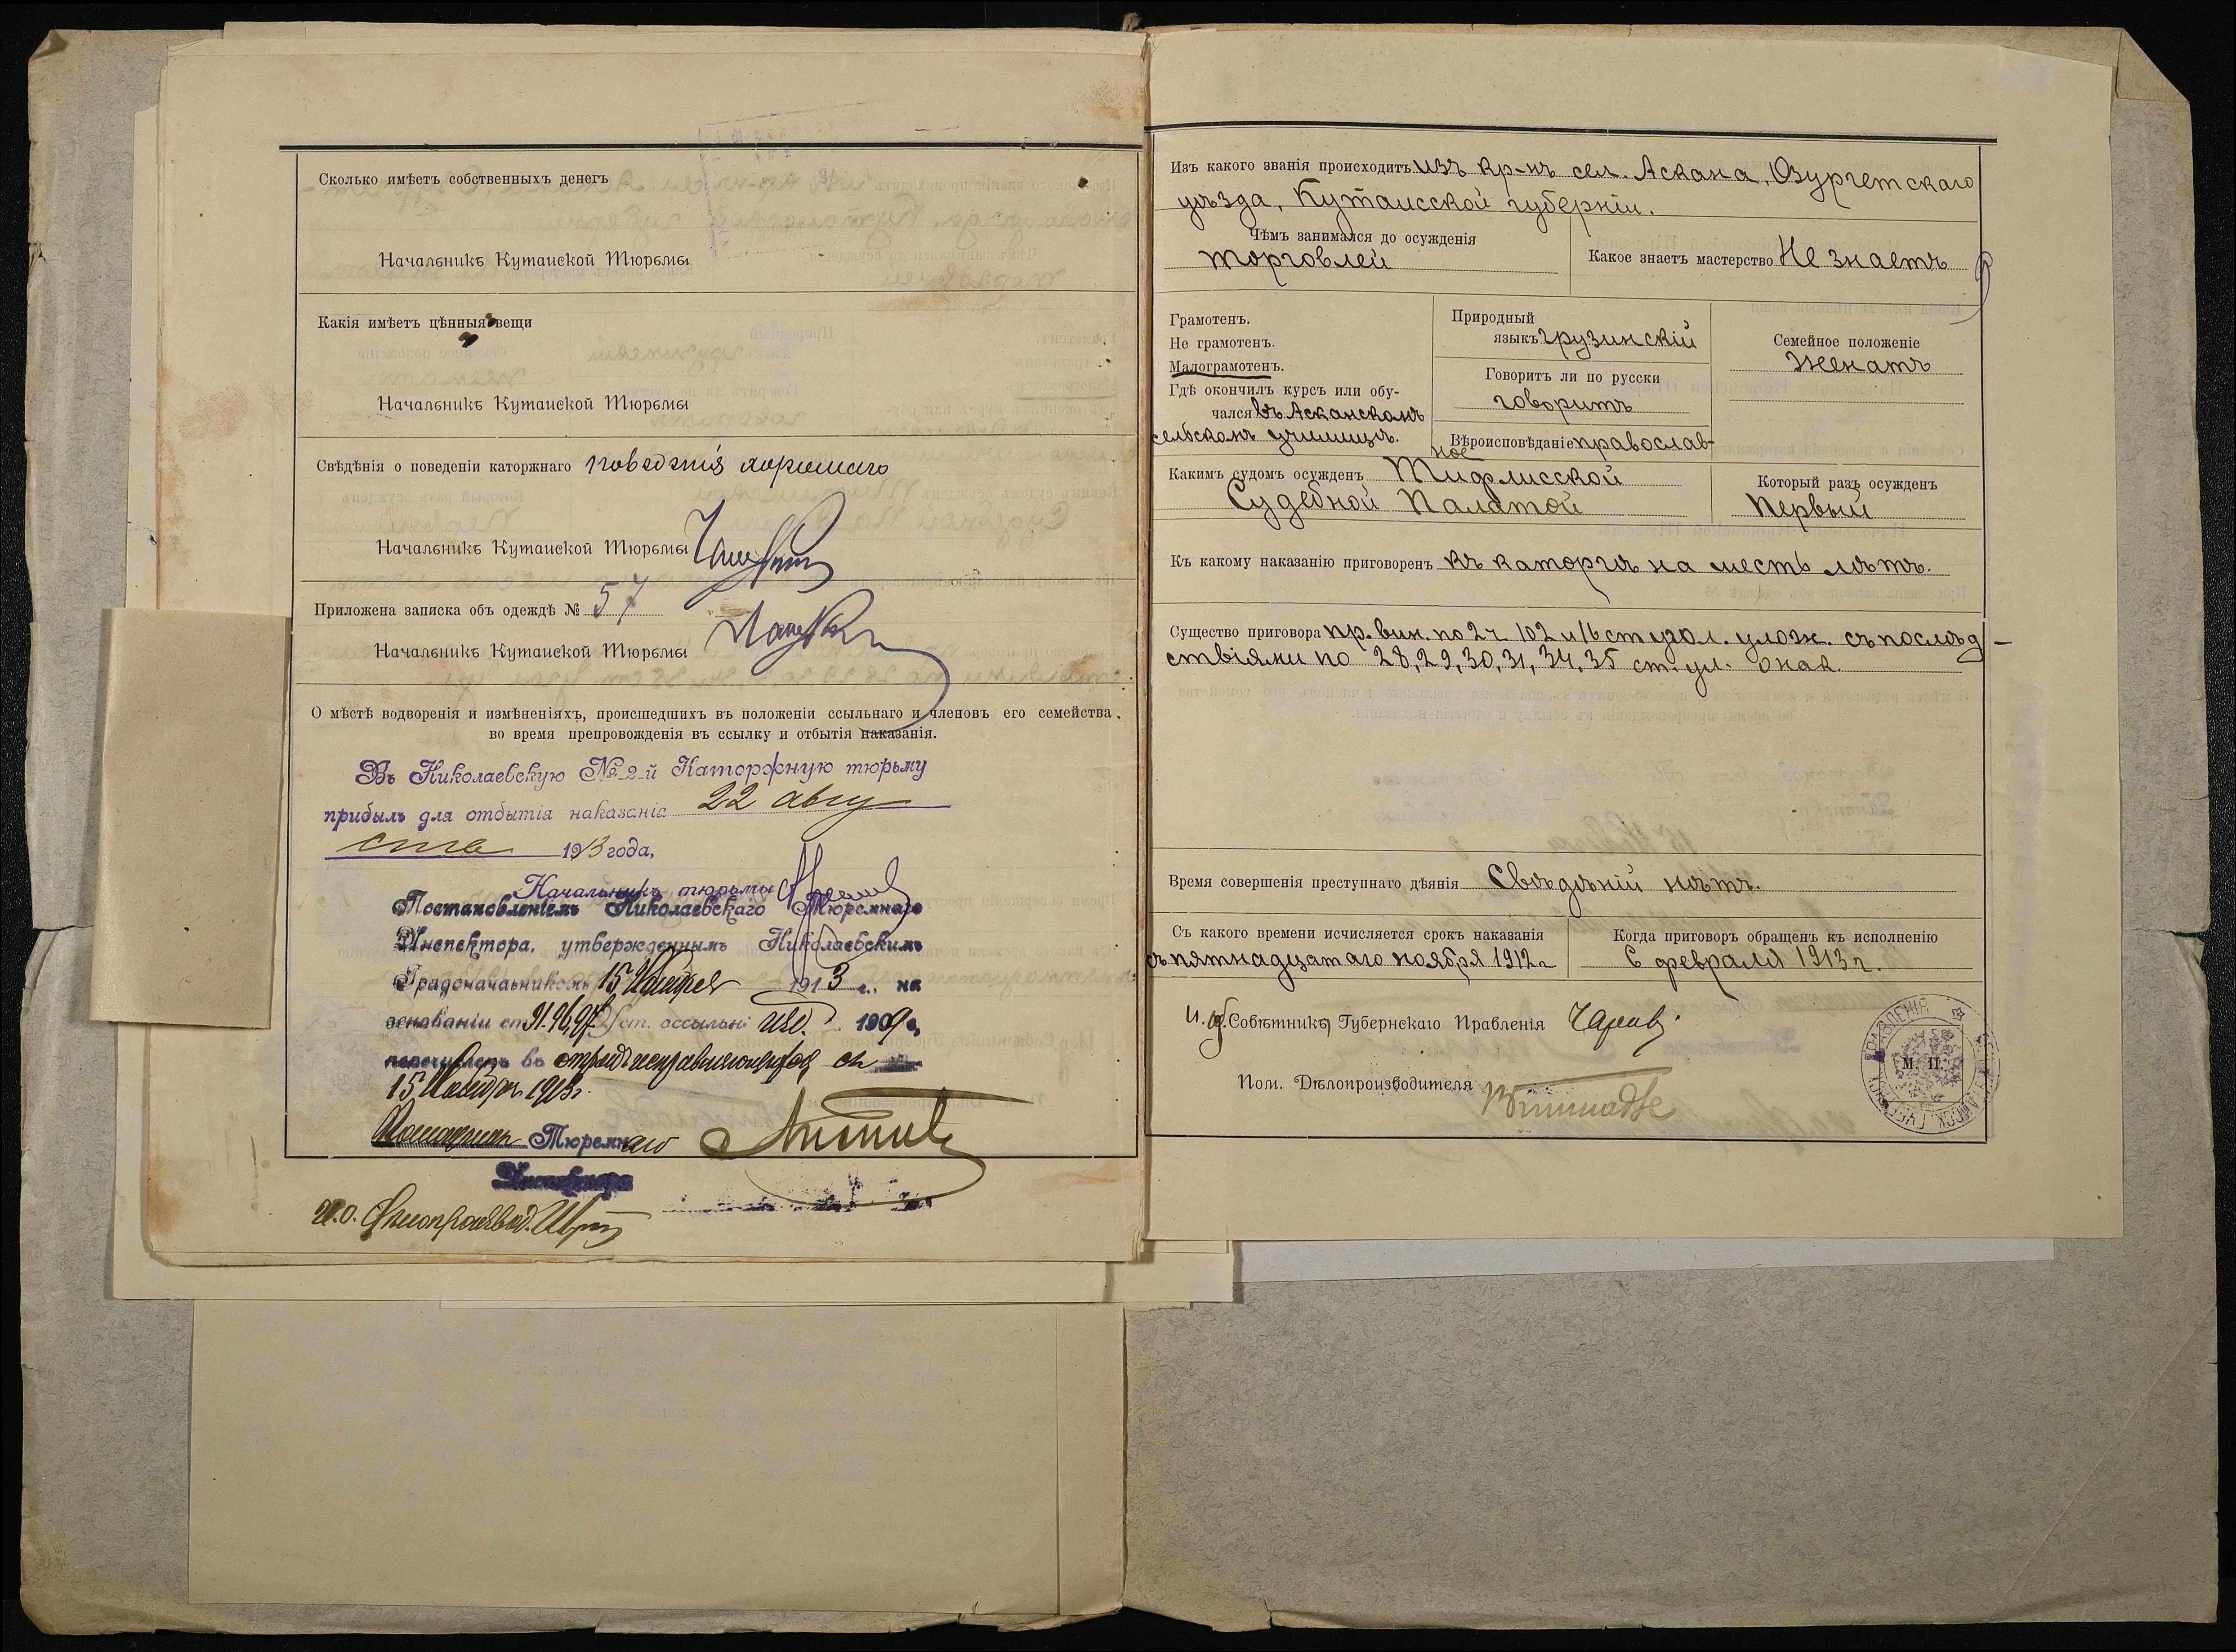 Сколько имѣетъ собственныхъ денегъ
Начальникъ Кутаиской Тюрьмы
Какія имѣетъ цѣнныя вещи
Начальникъ Кутаиской Тюрьмы
Свѣдѣнія о поведеніи каторжнаго поведенія хорошаго
Начальникъ Кутаиской Тюрьмы
Приложена записка объ одеждѣ № 57
Начальникъ Кутаиской Тюрьмы
О мѣстѣ водворенія и измѣненіяхъ, происшедшихъ въ положеніи ссыльнаго и членовъ его семейства
во время препровожденія въ ссылку и отбытія наказанія.
Въ Николаевскую № 2-й Каторжную тюрьму
прибылъ для отбытія наказанія 22 авгу
ста 1913 года,
Начальникъ тюрьмы
Постановленіемъ Николаевскаго Тюремнаго
Инспектора, утвержденнымъ Николаевскимъ
Градоначальникомъ 15 Ноября 1913 г. на
основаніи ст. 91. 96, 97 ст. о ссыльн. изд. 1909 г.
перечисленъ въ отрядъ исправляющихся съ
15 Ноября 1913 г.
Помощникъ Тюремнаго
Инспектора
И.О. Дѣлопроизвод.
Изъ какого званія происходитъ изъ кр-нъ сел. Аскана, Озургетскаго
уѣзда, Кутаисской губерніи.
Чѣмъ занимался до осужденія
торговлей
Какое знаетъ мастерство Не знаетъ
Грамотенъ.
Не грамотенъ.
Малограмотенъ.
Гдѣ окончилъ курсъ или обу-
чался въ Асканскомъ
сельскомъ училищѣ.
Природный
языкъ грузинскій
Говоритъ ли по русски
говоритъ
Вѣроисповѣданіе православ-
ное
Семейное положеніе
Женатъ
Какимъ судомъ осужденъ Тифлисской
Судебной Палатой
Который разъ осужденъ
Первый
Къ какому наказанію приговоренъ къ каторгѣ на шесть лѣтъ.
Существо приговора пр. вин. по 2 ч. 102 и 16 ст угол. улож. съ послѣд-
ствіями по 28, 29, 30, 31, 34, 35 ст. ул. о нак.
Время совершенія преступнаго дѣянія Свѣдѣній нѣтъ.
Съ какого времени исчисляется срокъ наказанія
съ пятнадцатаго ноября 1912 г
Когда приговоръ обращенъ къ исполненію
6 февраля 1913 г.
И. д. Совѣтника Губернскаго Правленія
Пом. Дѣлопроизводителя
М. П.